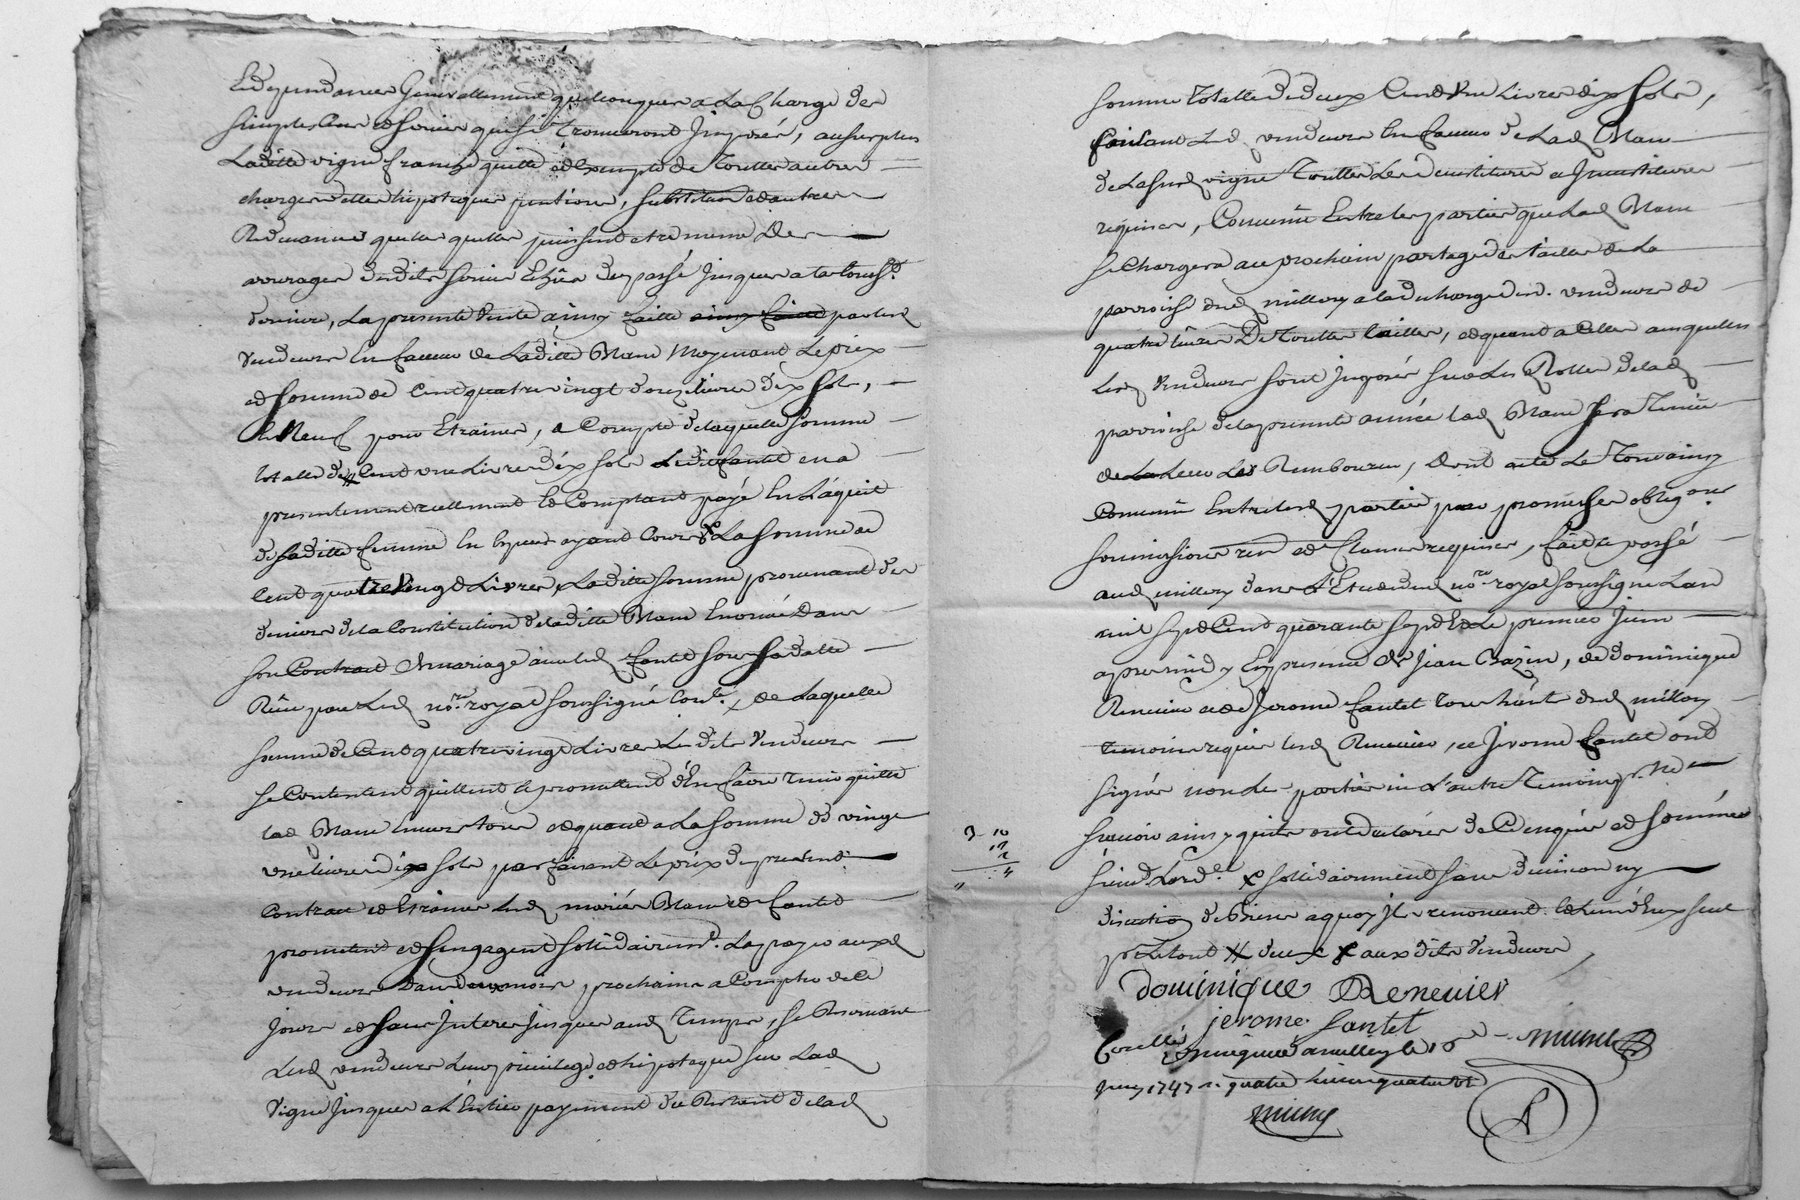 Et dependances Generallement quelconques a La Charge des
simples Cens et servis qui sy trouveront Imposés, au surplus
Laditte vigne franche quitte et Exempte de Touttes autres
charges dettes hipoteques pentions, substitution et autres
Redevances quelles quelles puissent etre meme des
arrerages desdits servis Echus du passé Jusques a la touss.t
derniere, La presente Vente ainsy faitte par lesd
Vendeurs En faveur de Laditte Mane Moyenant Le prix
et somme de Cent quatre vingt douze livres dix sols,
et Neuf pour Etraines, a Compte de laquelle somme
totalle de Cent une Livre dix sols Ledit fantet en a
presentement reellement et Comptant payé En L'aquit
de saditte femme En Especes ayant Cours La somme de
Cent quatre Vingt Livres, Laditte somme provenant des
deniers de la Constitution de laditte Mane Enoncée Dans
son Contract de mariage avec led fantet sous sa datte
Reçu par Led no.re royal soussigné Con.le, de Laquelle
somme de Cent quatre vingt Livres Lesdits Vendeurs
se Contentent quittent et promettent d'En faire tenir quitte
lad Mane Envers tous et quand a La somme de vingt
une livres dix sols parfaisant Le prix du present
Contrac et Etraines Lesd mariés Mane et fantet
promettent et s'engagent sollidairem.t La payer auxd
vendeurs Dans deux mois prochains a Compter de Ce
Jour et sans Interet Jusques aud Temps, se Reservant
Lesd vendeurs Leur privilege et hipoteque sur Lad
Vigne Jusques a L'Entier payement du Restant de lad
somme Totalle de deux Cent Une Livres dix sols,
faisant Lesd vendeurs En faveur de Lad Mane
de La susd vigne Touttes Les devestitures et Investitures
requises, Convenu Entre les parties que Lad Mane
se Chargera au prochain partage des tailles de La
parroisse dud millery a la decharge desd. vendeurs de
quatre livres De Touttes tailles, et quand a Celles auxquelles
Lesd Vendeurs sont Imposés sur Les Rolles de lad
parroisse de la presente année lad Mane sera Tenüe
de Les Leur Rembourser, Dont acte Le Tout ainsy
Convenu Entre lesd parties par promesses oblig.ons
soumissions ren et Clauses requises, fait et passé
aud millery dans L'Etude dud no.re royal soussigné L'an
mil sept Cent quarante sept Et Le premier Juin
apres midy En presence de Jean Bazin, de Dominique
Renevier et de Jerome fantet tous hants dud millery
temoins requis lesd Renevier, et Jerome fantet ont
signés non Les parties ni L'autre Temoin p. ne
sçavoir ainsy quils ont declarés de Ce enquis et sommés
suiv.t L'ord.e sollidairement sans division ny
discution de Biens a quoy Ils renoncent
pr Le tout deux aux dits Vendeurs
Dominique Renevier
jerome fantet
Controllé a millery le 10e
juin 1747